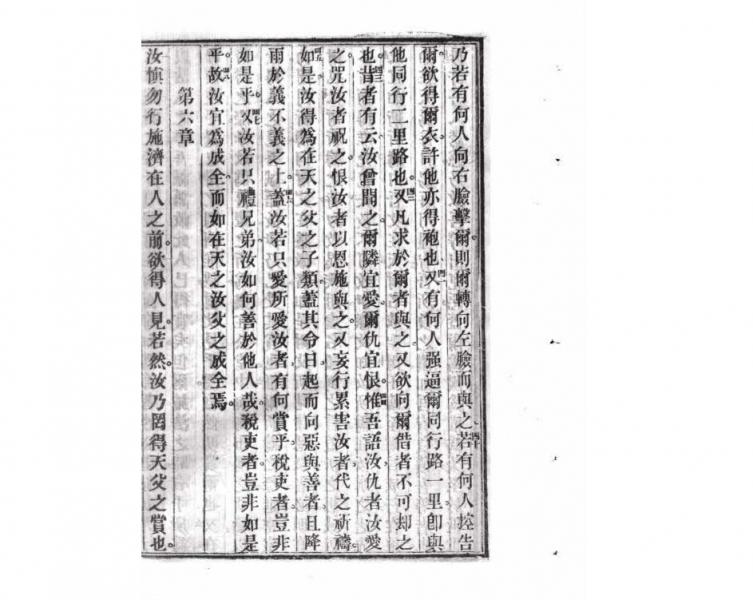 乃若有何人向右臉擊爾則爾轉向左臉而與之四十若有何人控告
爾欲得爾衣許他亦得袍也四一又有何人强逼爾同行路一里卽與
他同行二里路也四二又凡求於爾者與之又欲向爾借者不可却之
也四三昔者有云汝曾聞之爾隣宜愛爾仇宜恨四四惟吾語汝仇者汝愛
之咒汝者祝之恨汝者以恩施與之又妄行累害汝者代之祈禱
四五如是汝得爲在天之父之子類蓋其令日起而向惡與善者且降
雨於義不義之上四六蓋汝若只愛所愛汝者有何賞乎稅吏者豈非
如是乎四七又汝若只禮兄弟汝如何善於他人哉稅吏者豈非如是
乎四八故汝宜爲成全而如在天之汝父之成全焉
第六章
汝愼勿行施濟在人之前欲得人見若然汝乃罔得天父之賞也